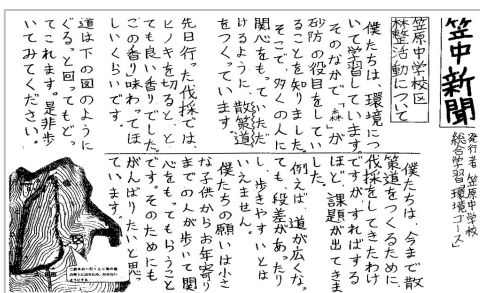 笠中新聞
発行者 笠原中学校
総合学習「環境コース」
笠原中学校区
林整活動について
僕たちは、環境につ
いて学習しています。
そのなかで「森」が
砂防の役目をしてい
ることを知りました。
そこで、多くの人に
関心をもっていただ
けるように、散策道
をつくっています。
先日行った伐採では、
ヒノキを切ると、と
ても良い香りでした。
この香り味わってほ
しいくらいです。
道は下の図のように
ぐるっと回ってもどっ
てこれます。是非歩
いてみてください。
僕たちは、今まで散
策道をつくるために、
伐採をしてきたわけ
ですが、すればする
ほど、課題が出てきま
した。
例えば、道が広くなっ
ても、段差があったり
し、歩きやすいとは
いえません。
僕たちの願いは小さ
な子供からお年寄り
までの人が歩いて関
心をもってもらうこと
です。そのためにも
がんばりたいと思っ
ています。